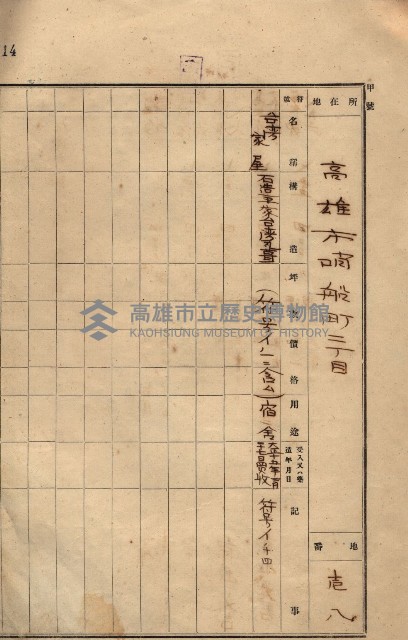 14
甲號
所在地
高雄市哨船町二丁目
地番
壱八
符號
名稱
構造
坪數
價格
用途
受入又ハ築造年月日
記事
台湾家屋
石造平家台湾瓦葺
(符号イノ二含ム)
宿舍
買收
符号イノ四
高雄市立歷史博物館
KAOHSIUNG MUSEUM OF HISTORY